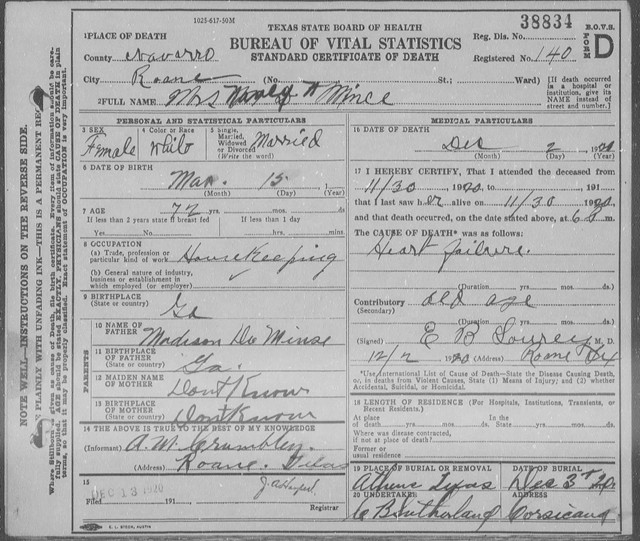 1025-617-50M
TEXAS STATE BOARD OF HEALTH
BUREAU OF VITAL STATISTICS
STANDARD CERTIFICATE OF DEATH
38834
B.O.V.S.
FORM D
Reg. Dis. No.
Registered No. 140
1 PLACE OF DEATH
County Navarro
City Roane (No. St.; Ward)
[If death occurred in a hospital or institution, give its NAME instead of street and number.]
2 FULL NAME Mrs Mince
PERSONAL AND STATISTICAL PARTICULARS
3 SEX Female
4 Color or Race White
5 Single, Married, Widowed or Divorced (Write the word) Married
6 DATE OF BIRTH
Mar. 15, 1
(Month) (Day) (Year)
7 AGE 72 yrs. mos. ds.
If less than 2 years state if breast fed
If less than 1 day
Yes No hrs. min.
8 OCCUPATION
(a) Trade, profession or particular kind of work Housekeeping
(b) General nature of industry, business or establishment in which employed (or employer)
9 BIRTHPLACE
(State or country) Ga
PARENTS
10 NAME OF FATHER Madison De Minse
11 BIRTHPLACE OF FATHER
(State or country) Ga.
12 MAIDEN NAME OF MOTHER Dont Know
13 BIRTHPLACE OF MOTHER
(State or country) Dont Know
14 THE ABOVE IS TRUE TO THE BEST OF MY KNOWLEDGE
(Informant) A.W. Crumbley
(Address) Roane Texas
15
Filed DEC 13 1920 191
Registrar
MEDICAL PARTICULARS
16 DATE OF DEATH
Dec 2 1920
(Month) (Day) (Year)
17 I HEREBY CERTIFY, That I attended the deceased from
11/30 1920 to , 191
that I last saw her alive on 11/30 1920
and that death occurred, on the date stated above, at 6 m.
The CAUSE OF DEATH* was as follows:
Heart failure.
(Duration) yrs. mos. ds.
Contributory old age
(Secondary)
(Duration) yrs. mos. ds.
(Signed) E B M. D.
12/2 1920 (Address) Roane Tex
*Use International List of Cause of Death—State the Disease Causing Death, or, in deaths from Violent Causes, State (1) Means of Injury; and (2) whether Accidental, Suicidal, or Homicidal.
18 LENGTH OF RESIDENCE (For Hospitals, Institutions, Transients, or Recent Residents.)
At place of death yrs. mos. ds. In the State yrs. mos. ds.
Where was disease contracted, if not at place of death?
Former or usual residence
19 PLACE OF BURIAL OR REMOVAL
Athens Texas
DATE OF BURIAL
Dec 3rd 20
20 UNDERTAKER
C B Sutherland
ADDRESS
Corsicana
E. L. STECK, AUSTIN
NOTE WELL—INSTRUCTIONS ON THE REVERSE SIDE.
PLAINLY WITH UNFADING INK—THIS IS A PERMANENT